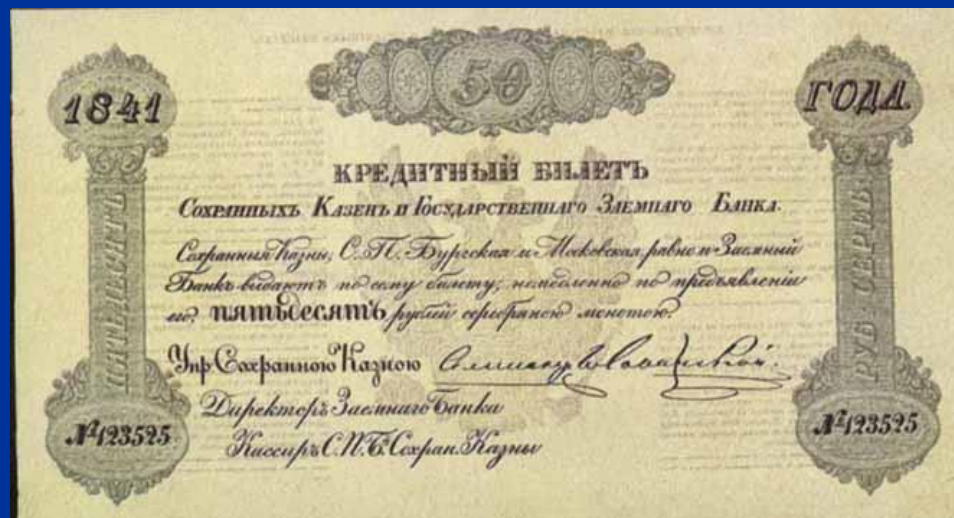 50
1841
ГОДА.
КРЕДИТНЫЙ БИЛЕТЪ
Сохранныхъ Казенъ и Государственнаго Заемнаго Банка.
Сохранныя Казны, С. П. Бургская и Московская равно и Заемный
Банкъ выдаютъ по сему билету, немедленно по предъявленіи
его, пятьдесятъ рублей серебряною монетою.
Упр Сохранною Казною
Директоръ Заемнаго Банка
Кассиръ С. П. Б. Сохран. Казны
ПЯТЬДЕСЯТЪ
РУБ. СЕРЕБ.
№123525
№123525